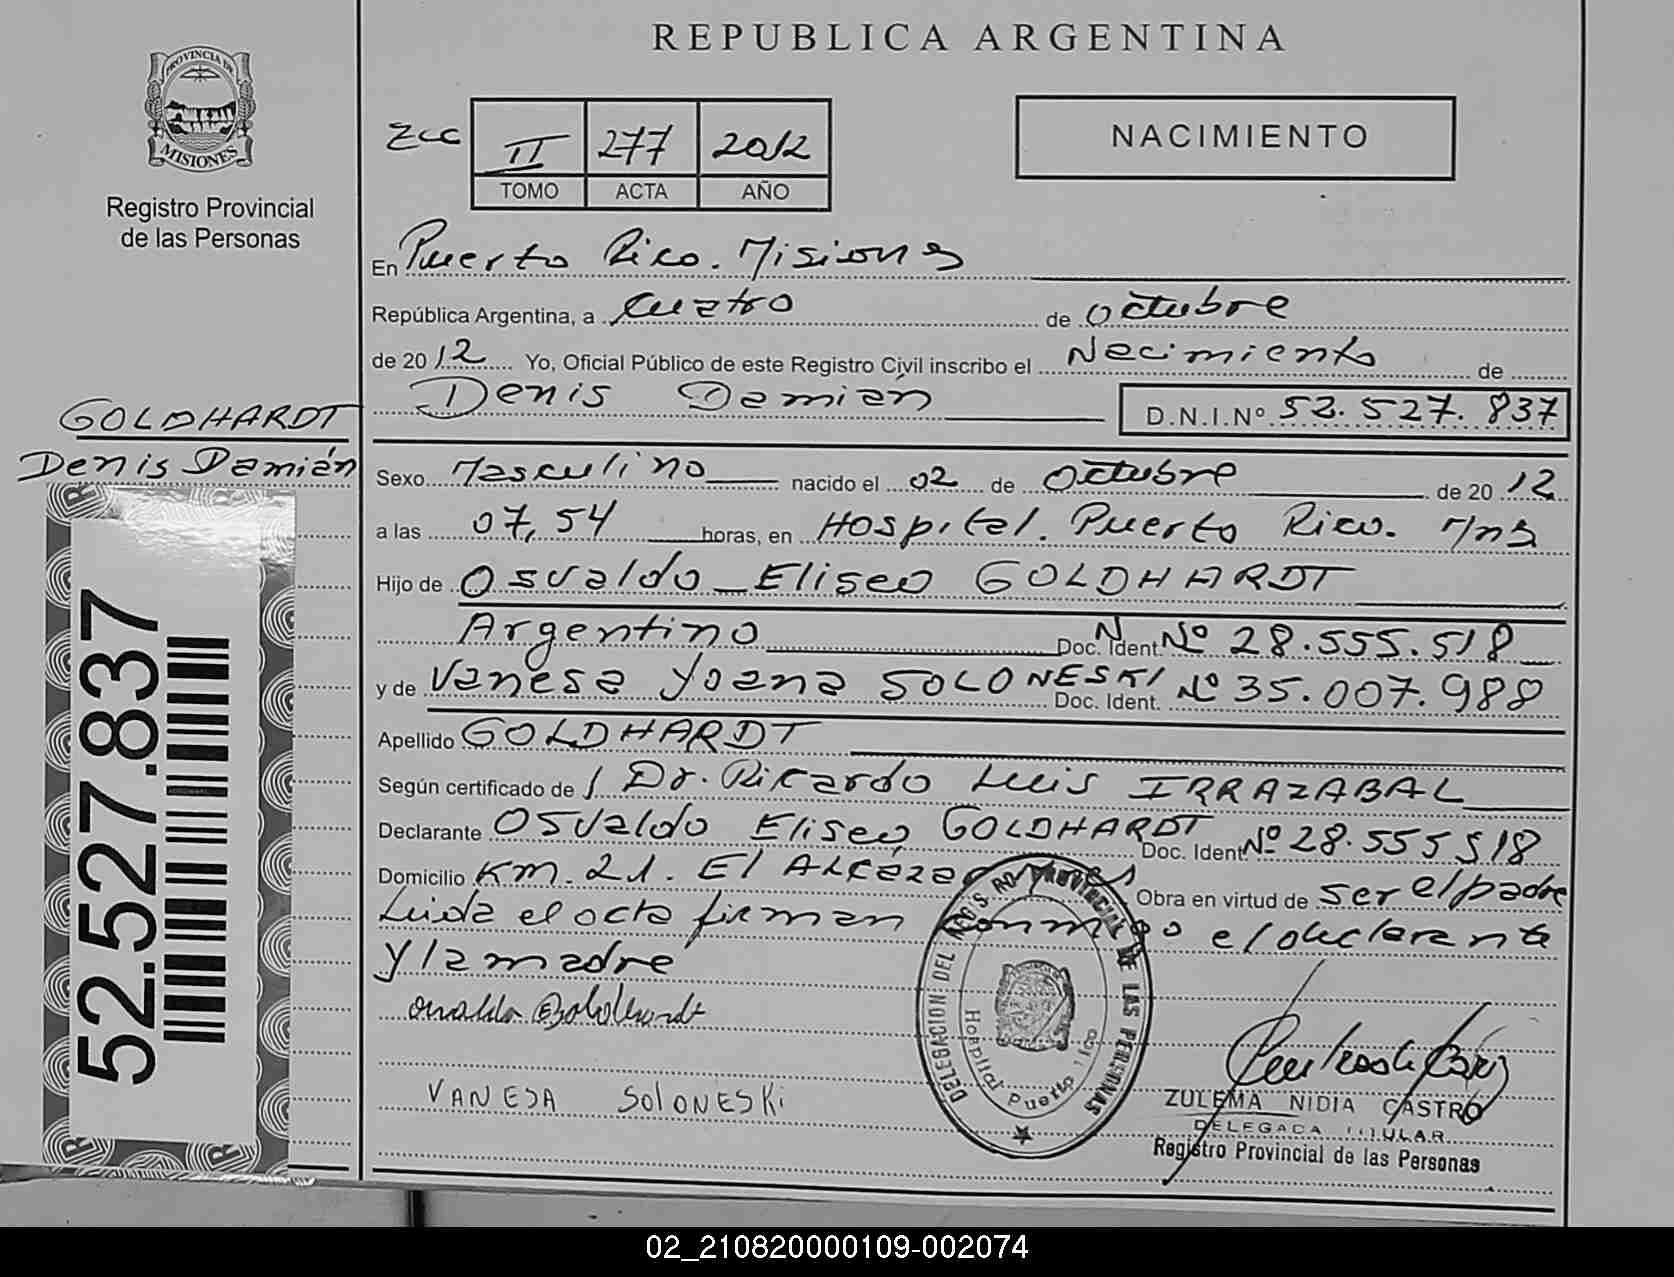 REPUBLICA ARGENTINA
PROVINCIA DE
MISIONES
Registro Provincial
de las Personas
II 277 2012
TOMO ACTA AÑO
NACIMIENTO
En Puerto Rico. Misiones
República Argentina, a cuatro de octubre
de 2012 Yo, Oficial Público de este Registro Civil inscribo el Nacimiento de
Denis Damián D.N.I.Nº 52.527.837
GOLDHARDT
Denis Damián
Sexo Masculino nacido el 02 de octubre de 2012
a las 07,54 horas, en Hospital. Puerto Rico. Mns
Hijo de Osvaldo Eliseo GOLDHARDT
Argentino Doc. Ident. Nº 28.555.518
y de Vanesa Yoana SOLONESKI Doc. Ident. Nº 35.007.988
Apellido GOLDHARDT
Según certificado de Dr. Ricardo Luis IRRAZABAL
Declarante Osvaldo Eliseo GOLDHARDT Doc. Ident. Nº 28.555518
Domicilio Km. 21. El Alcázar Obra en virtud de ser el padre
Leida el acta firman conmigo el declarante
y la madre
52.527.837
VANESA SOLONESKi
DELEGACION DEL REGISTRO PROVINCIAL DE LAS PERSONAS
Hospital Puerto Rico
ZULEMA NIDIA CASTRO
DELEGADA TITULAR
Registro Provincial de las Personas
02_210820000109-002074